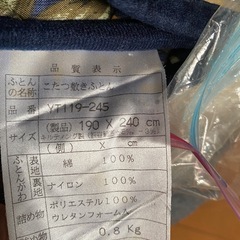 品質表示
ふとんの名称 こたつ敷きふとん
品番 YT119-245
サイズ (製品) 190 × 240 cm
(側) × cm
ふとんがわ 表地 綿 100%
裏地 ナイロン 100%
詰め物 ポリエステル 100%
ウレタンフォーム入
詰め物 0.8 Kg